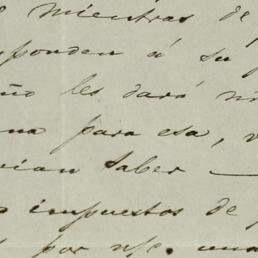 mientras de
ponden á su
ño les dará
na para esa,
rian saber —
impuestos de
por nje. una